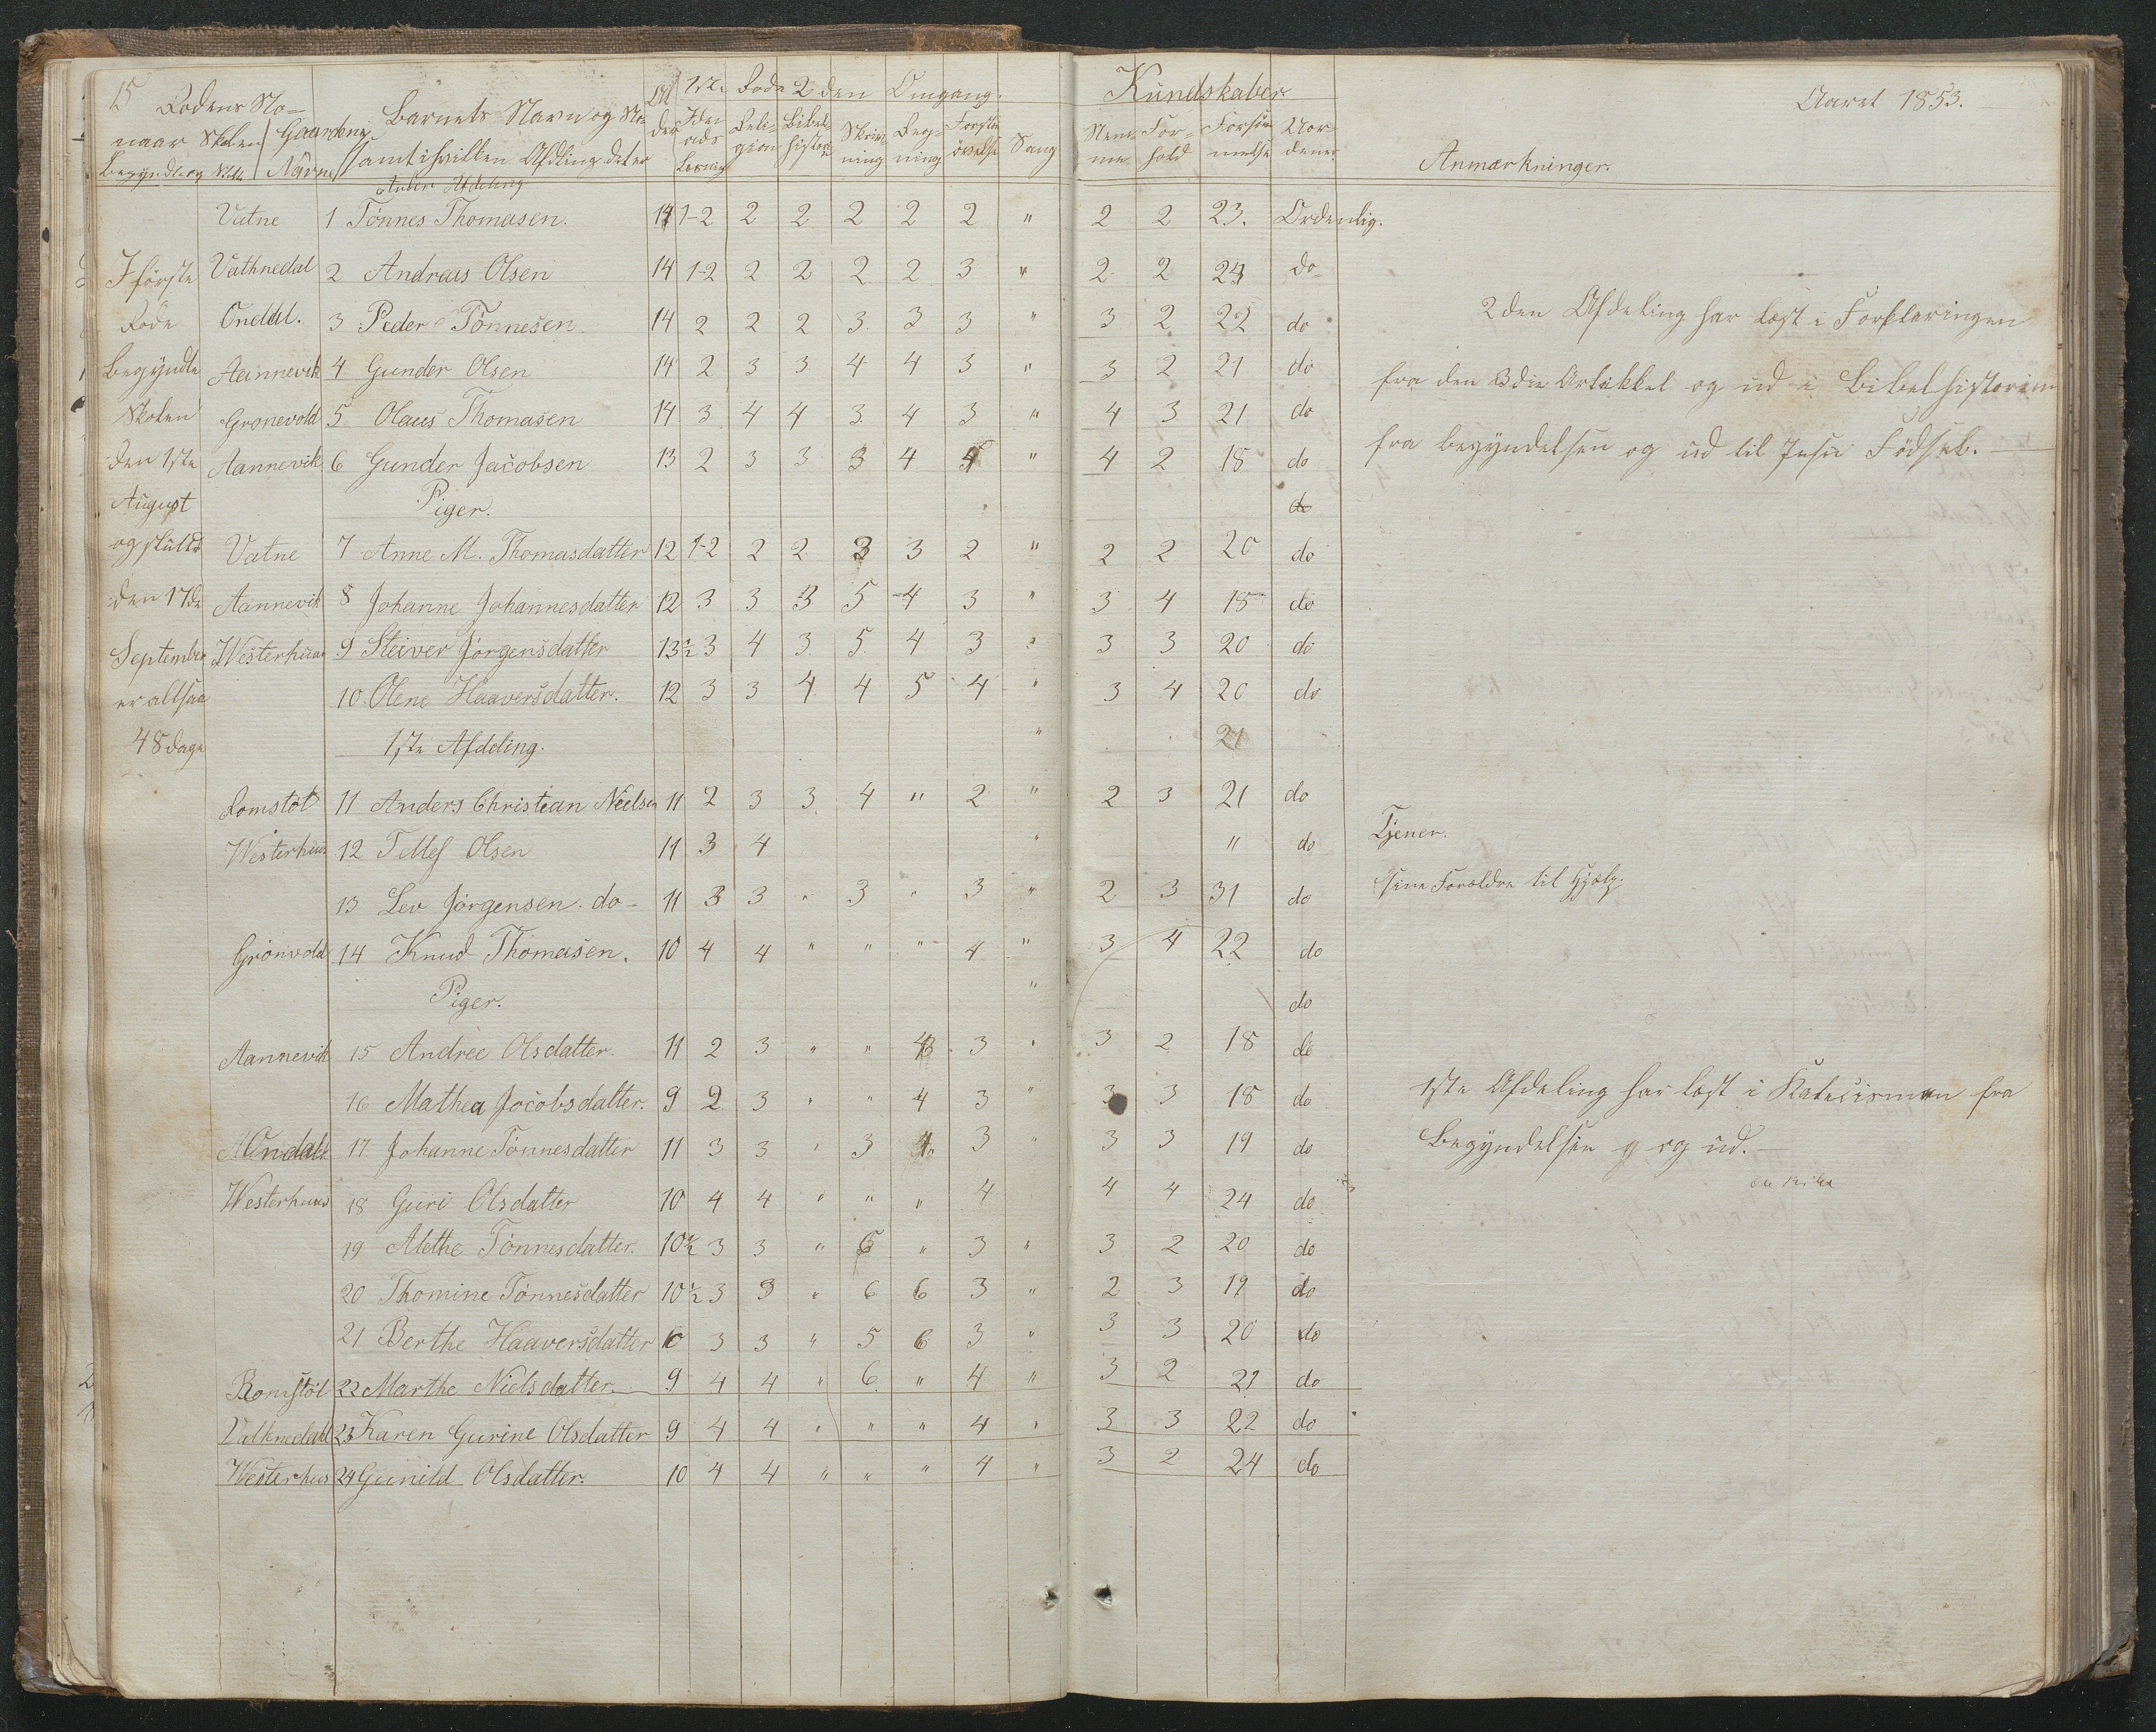 15 Rodens Na- Barnets Navn og Na- Al 1ste Rode 2den Omgang. Kundskaber Aaret 1853.
naar Skolen Gaardens der Religion Bibelhistorie Skrivning Regning Sang Nemme Forhold Forsømmelse Anmærkninger.
Begyndte og Navne samt i hvilken Afdeling det er
Anden Afdeling
Vatne 1 Tönnes Thomasen. 14 1-2 2 2 2 2 2 " 2 2 23. Ordenlig.
I förste Vathnedal 2 Andreas Olsen 14 1-2 2 2 2 2 3 " 2 2 24 do
Rode Ondal. 3 Peder Tönnesen 14 2 2 2 3 3 3 " 3 2 22 do
2den Afdeling har læst i Forklaringen
begyndte Aannevik 4 Gunder Olsen 14 2 3 3 4 4 3 " 3 2 21 do
fra den 3die Artikkel og ud i Bibelhistorien
Skolen Gronevold 5 Olaus Thomasen 14 3 4 4 3 4 3 " 4 3 21 do
fra begyndelsen og ud til Jesu Födsel.
den 1ste Aannevik 6 Gunder Jacobsen 13 2 3 3 3 4 " 4 2 18 do
August Piger. do
og sluttet Vatne 7 Anne M. Thomasdatter 12 1-2 2 2 3 3 2 " 2 2 20 do
den 17de Aannevik 8 Johanne Johannesdatter 12 3 3 3 5 4 3 " 3 4 18 do
September Westerhuus 9 Steiver Jörgensdatter 13½ 3 4 3 5 4 3 " 3 3 20 do
er altsaa 10 Olene Haaversdatter. 12 3 3 4 4 5 4 " 3 4 20 do
48 dage 1ste Afdeling. " 21
Romstöl 11 Anders Christian Nielsen 11 2 3 3 4 " 2 " 2 3 21 do
Westerhuus 12 Tellef Olsen 11 3 4 " " do Tjener.
13 Lev Jörgensen do 11 3 3 " 3 " 3 " 2 3 31 do sine Forældre til Hjælp.
Grönvold 14 Knud Thomasen. 10 4 4 " " " 4 " 3 4 22 do
Piger. " do
Aannevik 15 Andrèe Olsdatter. 11 2 3 " " 3 " 3 2 18 do
16 Mathea Jocobsdatter. 9 2 3 " " 4 3 " 3 3 18 do
1ste Afdeling har læst i Katecismen fra
Ondal 17 Johanne Tönnesdatter 11 3 3 " 3 4 3 " 3 3 19 do
Begyndelsen og ud.
Westerhuus 18 Guri Olsdatter 10 4 4 " " " 4 4 4 24 do
19 Alethe Tönnesdatter. 10½ 3 3 " 6 " 3 " 3 2 20 do
20 Thomine Tönnesdatter 10½ 3 3 " 6 6 3 " 2 3 19 do
21 Berthe Haaversdatter 3 3 " 5 6 3 " 3 3 20 do
Romstöl 22 Marthe Nielsdatter. 9 4 4 " 6 " 4 " 3 2 21 do
Vathnedal 23 Karen Gurine Olsdatter 9 4 4 " " " 4 " 3 3 22 do
Westerhus 24 Gunild Olsdatter. 10 4 4 " " " 4 " 3 2 24 do